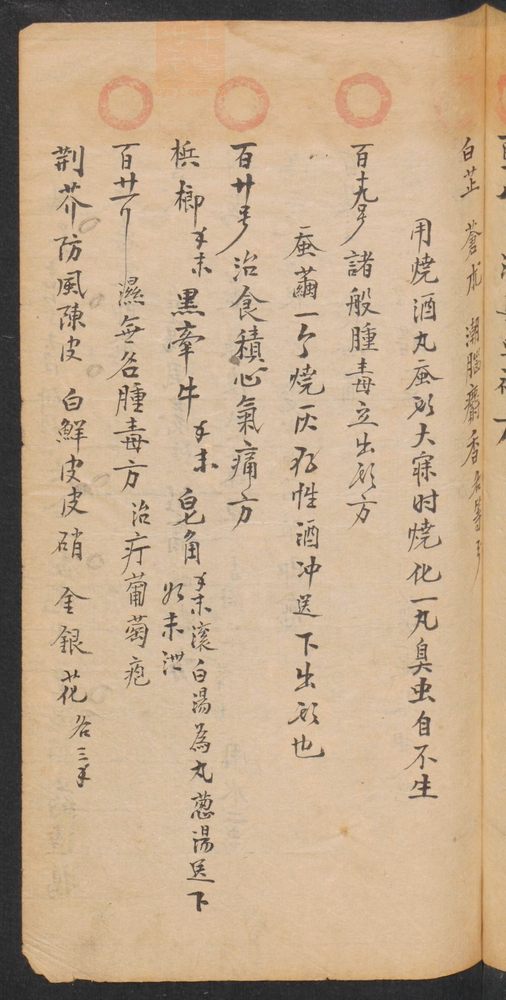 白芷 蒼朮 潮腦 麝香 各等分
用燒酒丸蚕豆大 寐时燒化一丸臭虫自不生
百十九号 諸般腫毒立出頭方
蚕繭一个燒灰存性酒冲送下出頭也
百廿号 治食積心氣痛方
梹榔 末 黑牽牛 末 皂角 末滚白湯為丸葱湯送下
百廿一 濕無名腫毒方 治疔葡萄疱
荆芥防風陳皮 白鮮皮皮硝 金銀花 各三